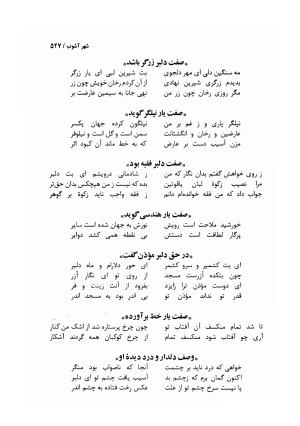 شهر آشوب / ۵۴۷
«صفت دلبر زرگر باشد»
مه سنگین دلی ای مهر دلجوی بت شیرین لبی ای یار زرگر
بدیدم زرگری شیرین نهادی از آن کردم رخان خویش چون زر
مگر روزی رخان چون زر من نهی جانا به سیمین عارضت بر
«صفت یار نیلگر گوید»
نیلگر یاری و ز غم بر من نیلگون کرده جهان یکسر
عارضین و رخان و انگشتانت سمن است و گل است و نیلوفر
مزن آسیب دست بر نیلم که بود ماه بد آن که کبود اثر
«صفت دلبر فقیه بود»
ز روی خواهش گفتم بدان نگار که من ز شادمانی درویشم ای بت دلبر
مرا نصیب زکوة لبان یاقوتین بده که نیست ز من هیچکس بدان حق‌تر
جواب داد که من فقیهم دانم که نبود واجب زکوة بر گوهر
«صفت یار هندسی گوید»
خورشید ملاحت است رویش نورش به جهان شده است سایر
پرگار لطافت است دستش بی نقطه همی کشد دوایر
«در حق دلبر مؤذن گفت»
ای بت کشمیر و سرو کشمر ای حور دلارام و ماه دلبر
چون بتکده آزرست مسجد از روی تو ای نگار آزر
ای دوست مؤذن ترا زایزد بفزود از آنت زینت و فر
قدر تو نداند مؤذن تو بی قدر بود به مسجد اندر
«صفت یار خط برآورده»
تا شد تمام منکسف آن آفتاب تو چون چرخ پرستاره شد از اشک من کنار
آری چو آفتاب شود منکسف تمام از چرخ کوکبان همه گردند آشکار
«وصف دلدار و درد دیدهٔ او»
خواهی که درد ناید بر چشمت آنجا که ناصواب بود منگر
اکنون گمان برم که ز چشم بد آسیب یافت چشم تو ای دلبر
یا نیست سرخ چشم تو از علت عکس رخت فتاده به چشم اندر